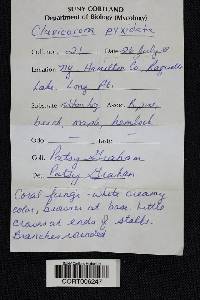 SUNY CORTLAND
Department of Biology (Mycology)
Clavicorona pyxidata
Coll. no. 21 Date 26 July
Location NY Hamilton Co. Raquette
Lake. Long Pt.
Substrate rotten log Assoc.
beech, maple, hemlock
Odor — Taste —
Coll. Patsy Graham
Det. Patsy Graham
Coral fungi - white creamy
color, browner at base. Little
crowns at ends of stalks.
Branches rounded
CORT006247